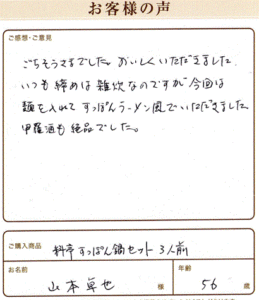 お客様の声
ご感想・ご意見
ごちそうさまでした。おいしくいただきました。
いつも締めは雑炊なのですが今回は
麺を入れてすっぽんラーメン風でいただきました。
甲羅酒も絶品でした。
ご購入商品
料亭すっぽん鍋セット3人前
お名前
山本卓也 様
年齢
56 歳